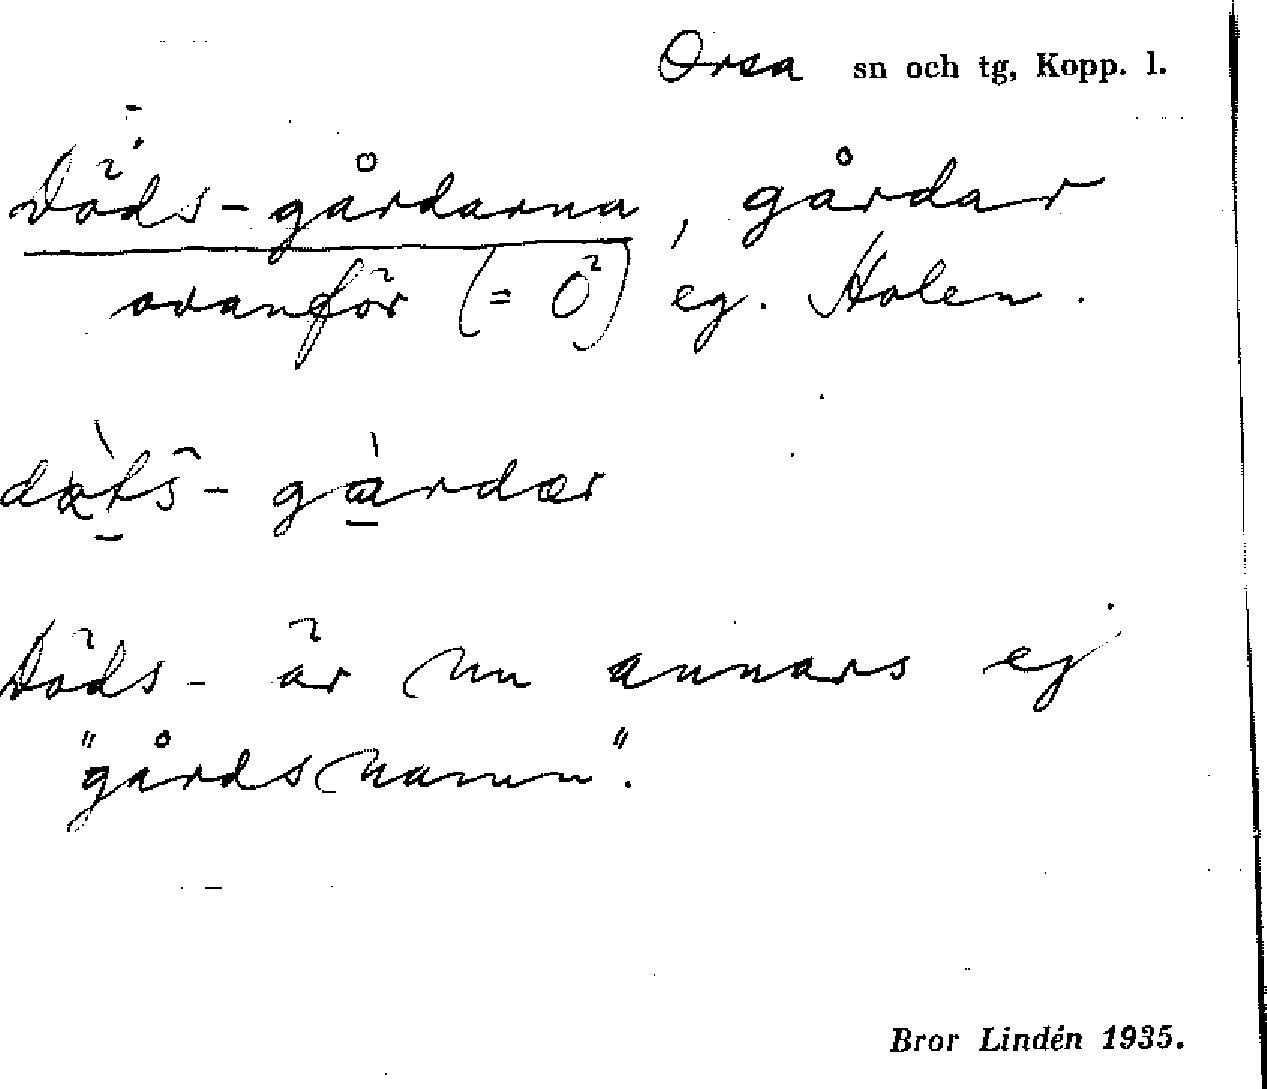 Orsa sn och tg, Kopp. l.
Döds-gårdarna, gårdar
ovanför (= Ö) eg. Holen.
Döds- är nu annars ej
"gårdsnamn".
Bror Lindén 1935.